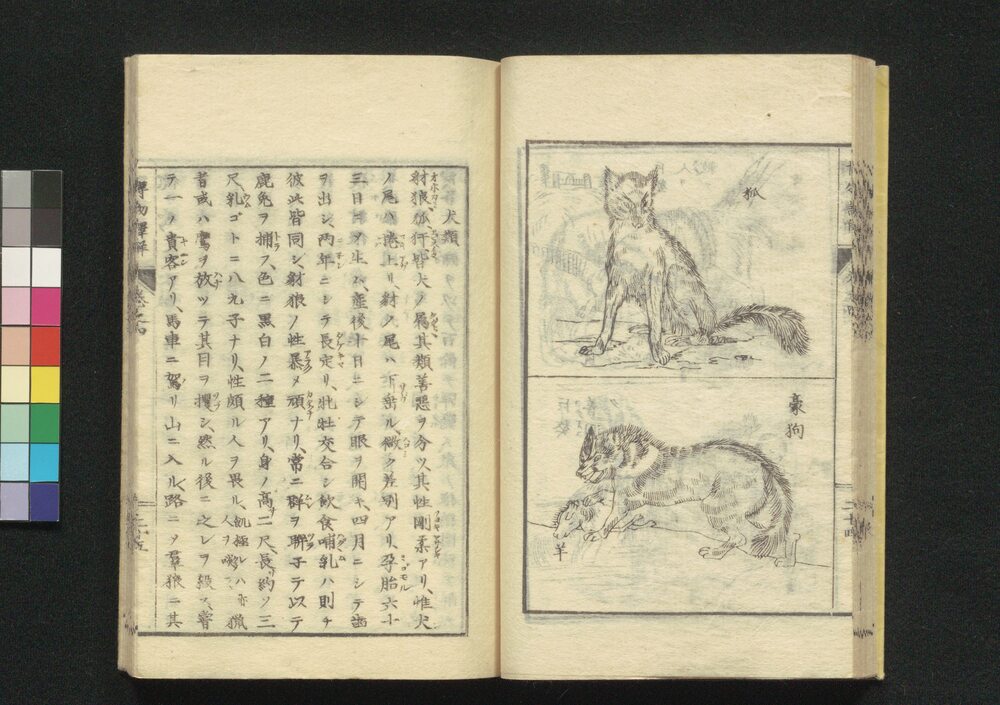 狐
豪狗
羊
犬類
豺狼狐犴皆犬ノ屬其類善惡ヲ分ツ、其性剛柔アリ、唯犬
ノ尾ハ捲上リ、豺ノ尾ハ下岳ル、微ク差別アリ、孕胎六十
三日ニメ生ム、産後十日ニシテ眼ヲ開キ、四月ニシテ齒
ヲ出シ、両年ニシテ長定リ、牝牡交合シ飲食哺乳ハ則チ
彼此皆同シ豺狼ノ性暴メ頑ナリ、常ニ群ヲ聨子テ以テ
鹿兔ヲ捕フ、色ニ黒白ノ二種アリ、身ノ高二尺、長約ソ三
尺、乳ゴトニ八九子ナリ、性頗ル人ヲ畏ル、飢極ルハ亦人ヲ 獵
者或ハ鷹ヲ放ツテ其目ヲ攫シ、然ル後ニ之レヲ殺ス、嘗
テ一ノ貴客アリ、馬車ニ駕リ山ニ入ル路ニメ羣狼ニ其